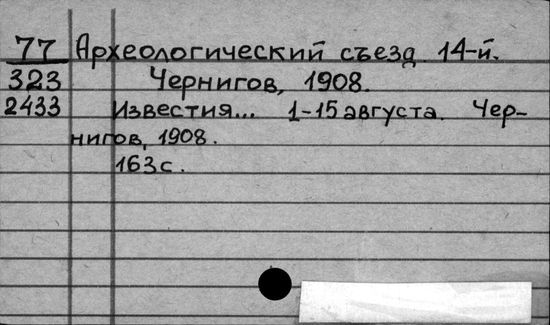 77 Археологический съезд 14-й.
323 Чернигов, 1908.
2433 Известия... 1-15 августа. Чер-
нигов, 1908.
163с.